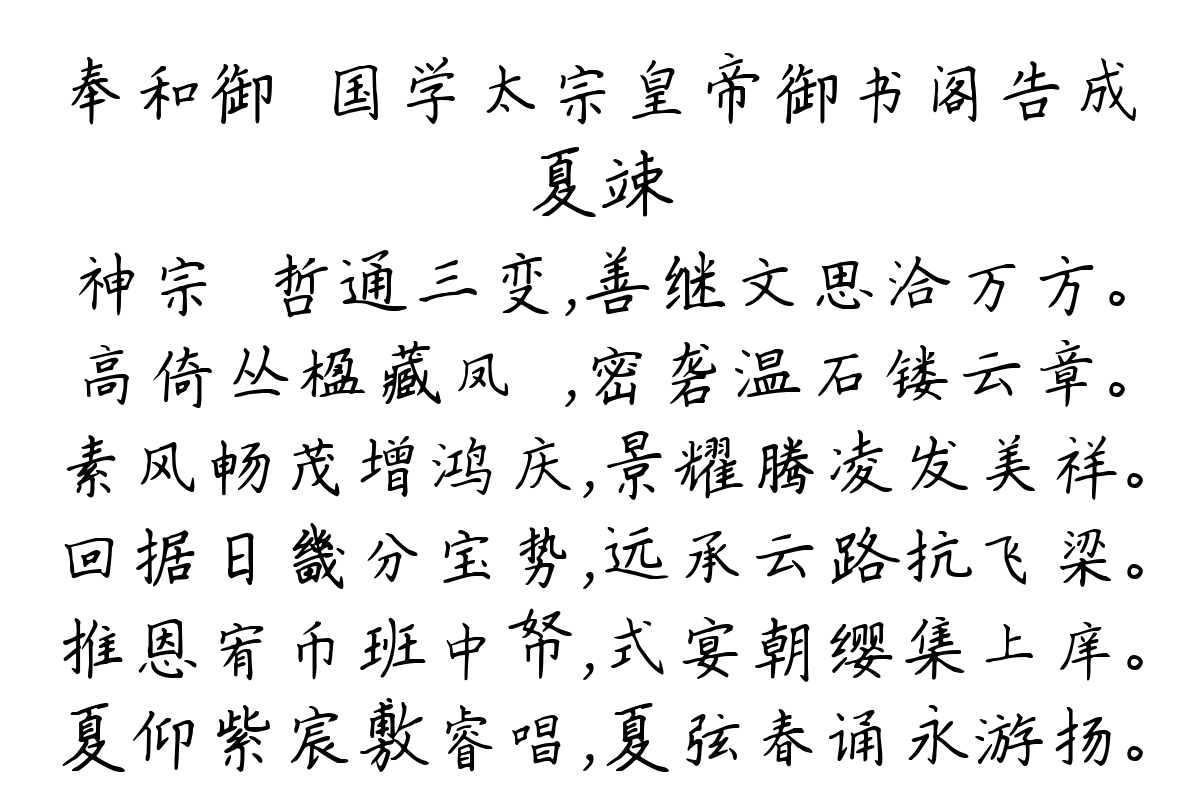 奉和御 国学太宗皇帝御书阁告成
夏竦
神宗 哲通三变,善继文思洽万方。
高倚丛楹藏凤 ,密砻温石镂云章。
素风畅茂增鸿庆,景耀腾凌发美祥。
回据日畿分宝势,远承云路抗飞梁。
推恩宥币班中帑,式宴朝缨集上庠。
夏仰紫宸敷睿唱,夏弦春诵永游扬。